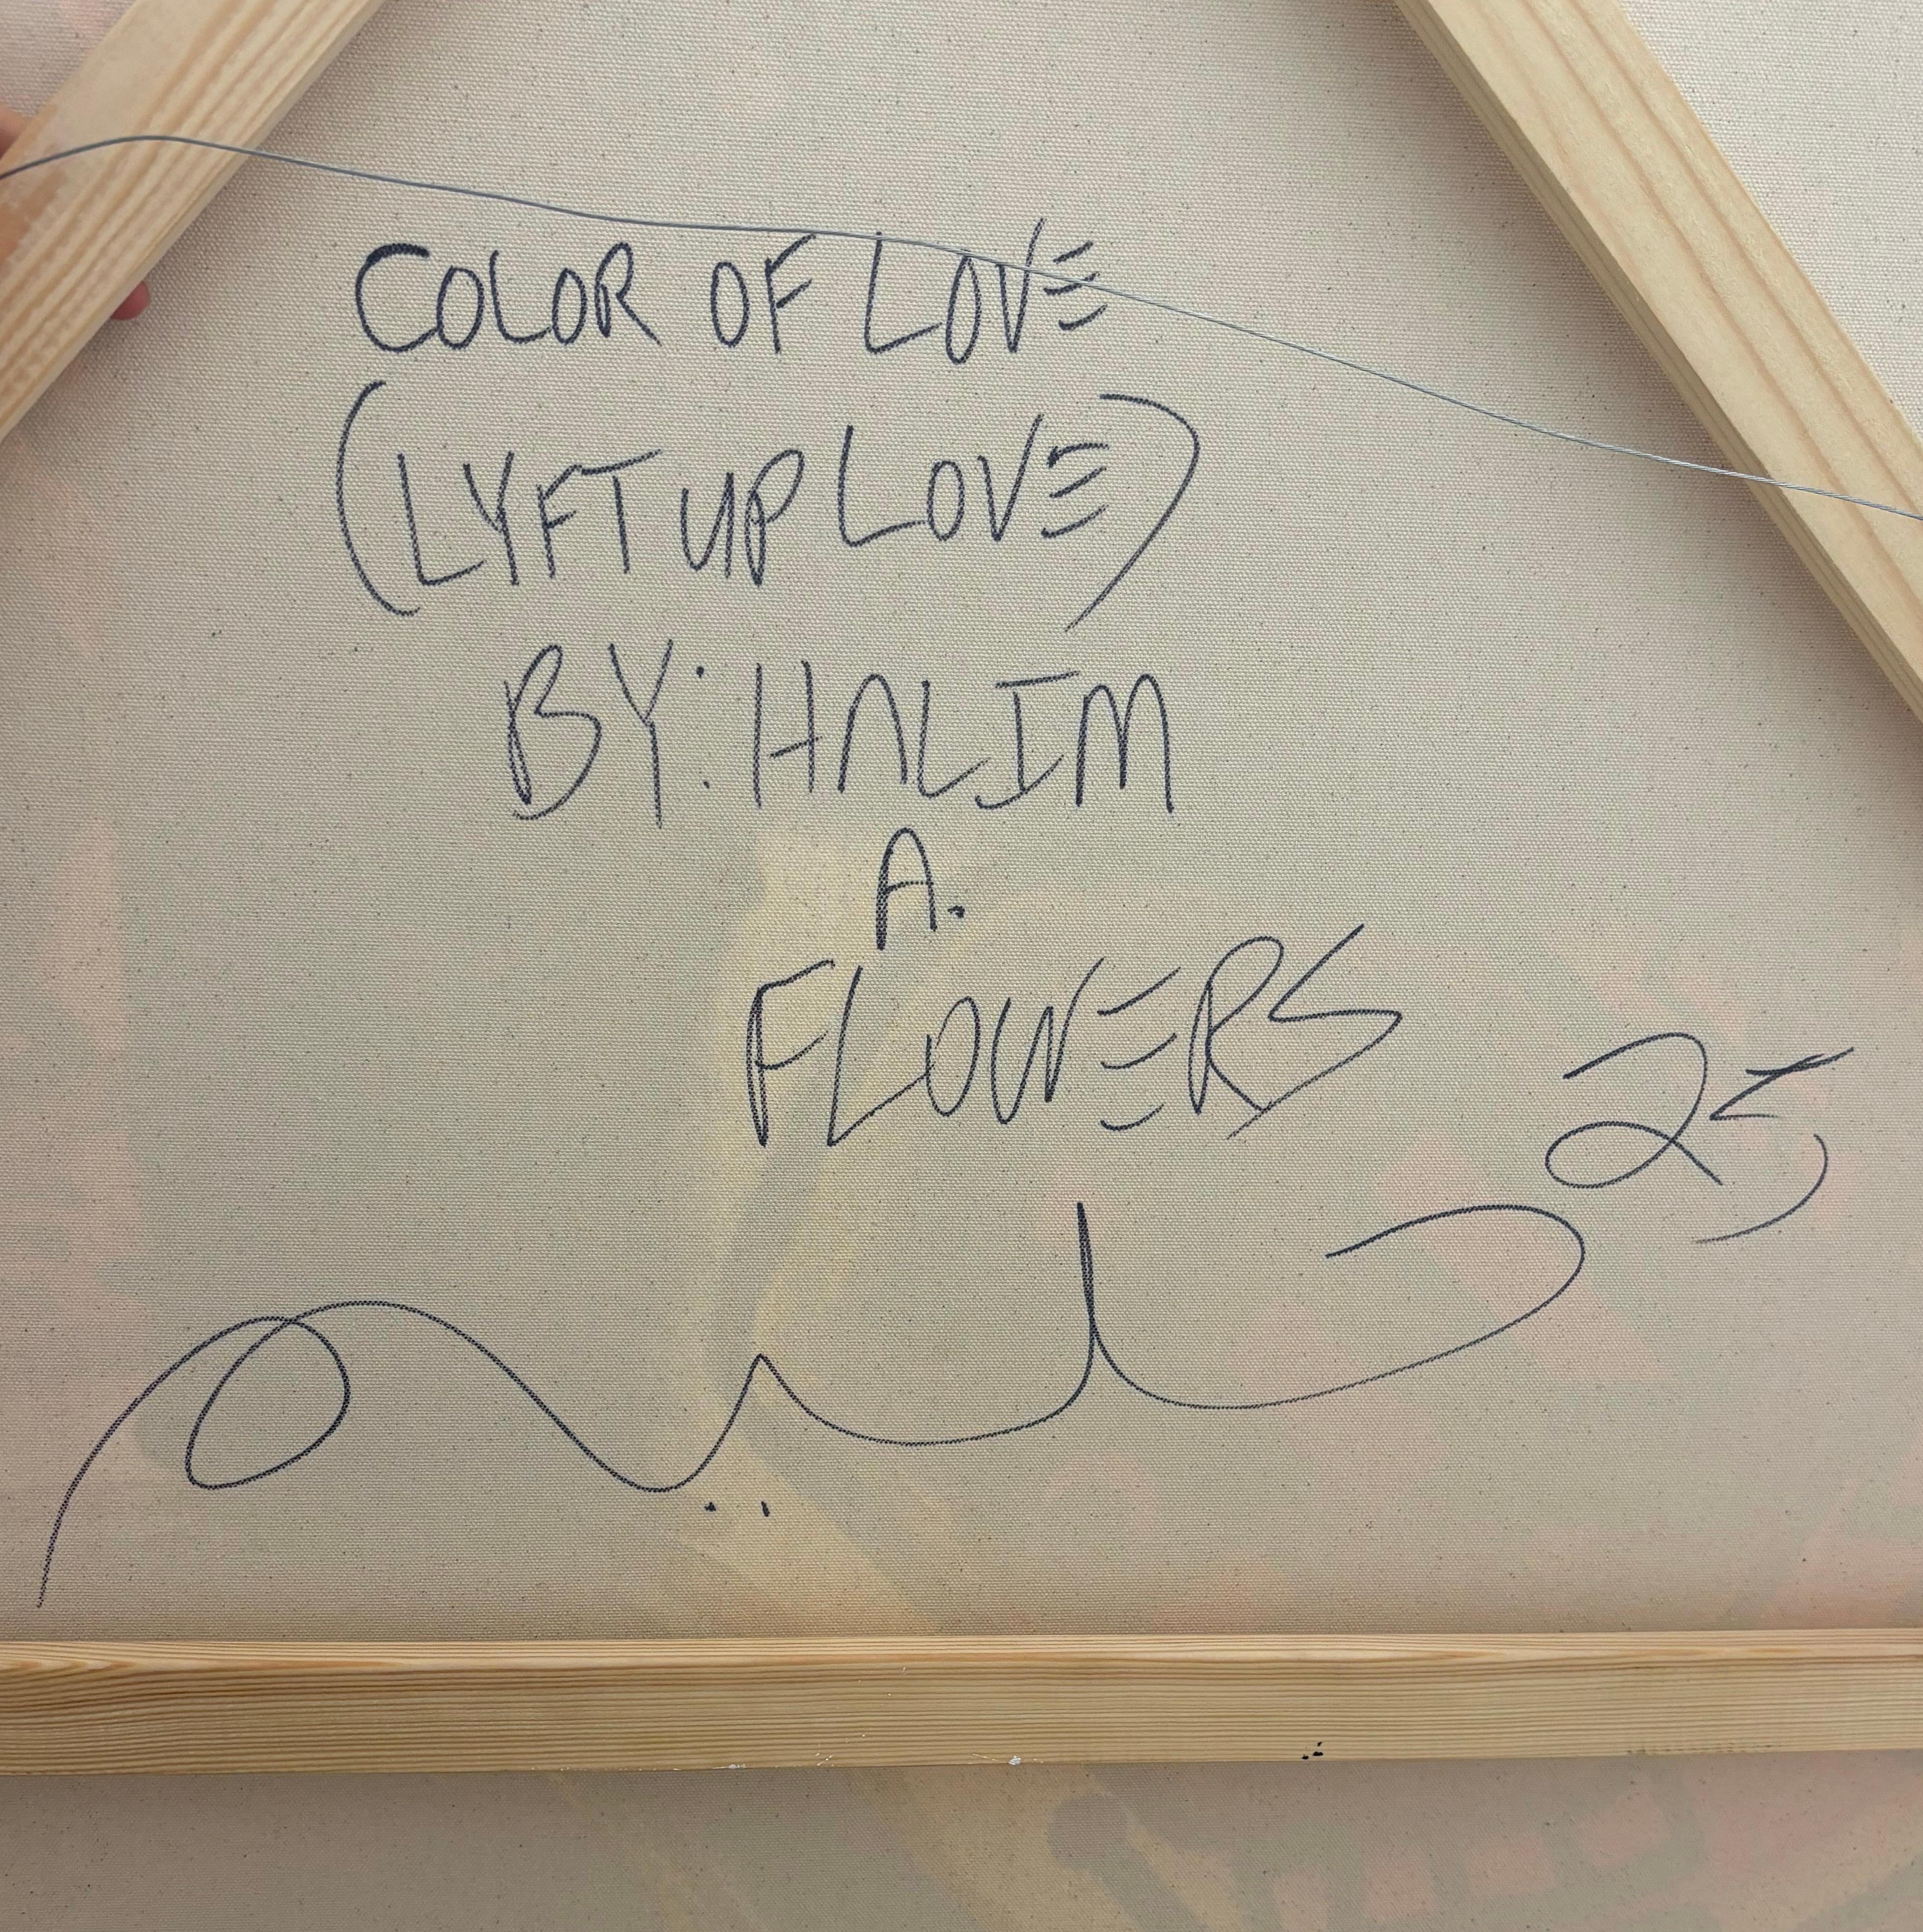 COLOR OF LOVE
(LYFT UP LOVE)
BY: HALIM
A.
FLOWERS
25